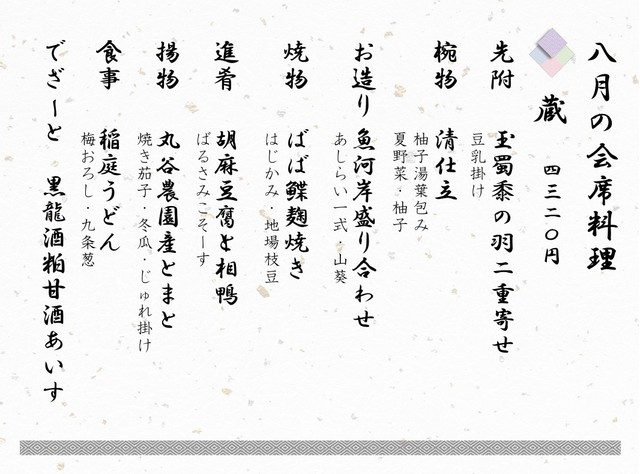 八月の会席料理
蔵 四三二〇円
先附 玉蜀黍の羽二重寄せ
豆乳掛け
椀物 清仕立
柚子湯葉包み
夏野菜・柚子
お造り 魚河岸盛り合わせ
あしらい一式・山葵
焼物 ばば鰈麹焼き
はじかみ・地場枝豆
進肴 胡麻豆腐と相鴨
ばるさみこそーす
揚物 丸谷農園産とまと
焼き茄子・冬瓜・じゅれ掛け
食事 稲庭うどん
梅おろし・九条葱
でざーと 黒龍酒粕甘酒あいす